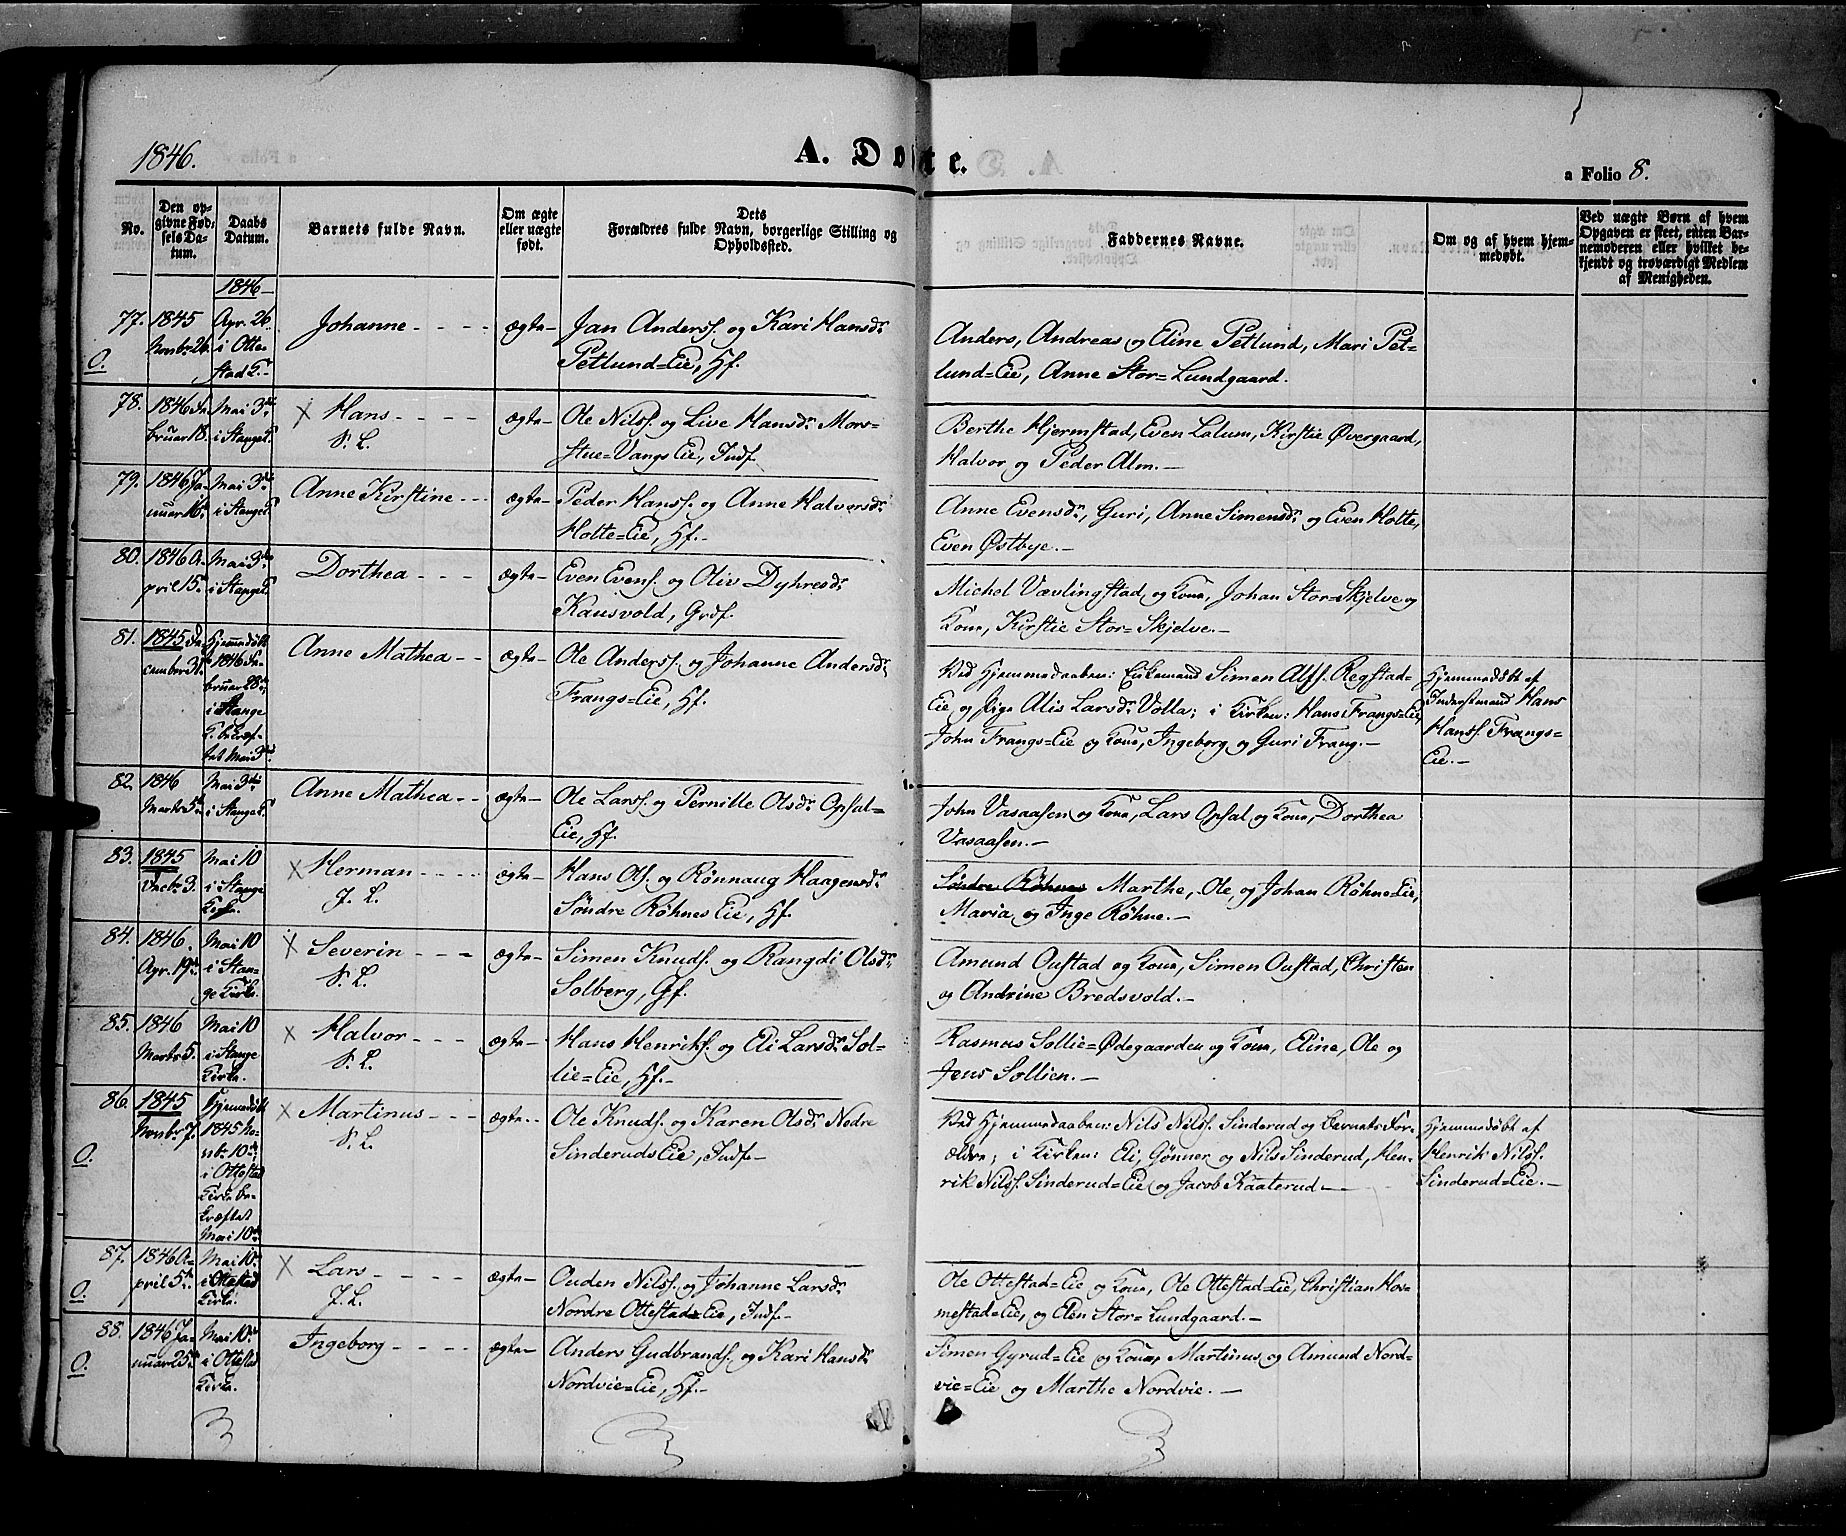 1846.
A. Døbte.
a Folio 8.
No.
Den op-
givne Fød-
sels Da-
tum.
Daabs
Datum.
Barnets fulde Navn.
Om ægte
eller uægte
født.
Dets
Forældres fulde Navn, borgerlige Stilling og
Opholdssted.
Faddernes Navne.
Om og af hvem hjem-
medøbt.
Ved uægte Børn af hvem
Opgaven er skeet, enten Bar-
nemoderen eller hvilket be-
kjendt og troværdigt Medlem
af Menigheden.
1846
77.
O.
1845
Novbr. 26.
Apr. 26
i Otte-
stad K.
Johanne
ægte
Jan Anders. og Kari Hansdr.
Petlund=Eie, Hf.
Anders, Andreas og Eline Petlund, Mari Pet-
lund=Eie, Anne Stor=Lundgaard.
78.
1846 Fe-
bruar 18.
Mai 3die
i Stange K.
X Hans
S. L.
ægte
Ole Nils. og Live Hansdr. Mor-
stue=Vangs Eie, Indf.
Berthe Hjermstad, Even Lalum, Kirstie Øvergaard,
Halvor og Peder Alm.
79.
1846 Ja-
nuar 16de
Mai 3die
i Stange K.
Anne Kirstine
ægte
Peder Hans. og Anne Halvorsdr.
Holte=Eie, Hf.
Anne Evensdr., Guri, Anne Simensdr. og Even Holte,
Even Østbye.
80.
1846 A-
pril 15de
Mai 3die
i Stange K.
Dorthea
ægte
Even Evens. og Oliv Dyhresdr.
Kausvold, Grdf.
Michel Vævlingstad og Kone, Johan Stor=Skjelve og
Kone, Kirstie Stor=Skjelve.
81.
1845 De-
cember 31te
Hjemmedøbt
1846 Fe-
bruar 28de
i Stange
K. bekræf-
tet Mai 3die
Anne Mathea
ægte
Ole Anders. og Johanne Andersdr.
Frangs=Eie, Hf.
Ved Hjemmedaaben: Enkemand Simen Alfs. Regstad-
Eie og Pige Alis Larsdr. Volla; i Kirken: Hans Frangs=Eie,
John Frangs=Eie og Kone, Ingeborg og Guri Frang.
Hjemmedøbt af
Inderstmand Hans
Hans. Frangs=
Eie.
82.
1846
Marts 5te
Mai 3die
i Stange K.
Anne Mathea
ægte
Ole Lars. og Pernille Olsdr. Opsal-
Eie, Hf.
John Vasaasen og Kone, Lars Opsal og Kone, Dorthea
Vasaasen.
83.
1845
Decbr. 3.
Mai 10
i Stange
Kirke.
X Herman
J. L.
ægte
Hans Ols. og Rønnaug Haagensdr.
Søndre Røhnes Eie, Hf.
Søndre Røhnes Marthe, Ole, og Johan Røhne=Eie,
Maria og Inge Røhne.
84.
1846.
Apr. 19de
Mai 10
i Stan-
ge Kirke.
X Severin
S. L.
ægte
Simen Knuds. og Rangdi Olsdr.
Solberg, Gf.
Amund Oustad og Kone, Simen Oustad, Christen
og Andrine Bredsvold.
85.
1846
Marts 5.
Mai 10
i Stange
Kirke.
X Halvor
S. L.
ægte
Hans Henriks. og Eli Larsdr. Sol-
lie=Eie, Hf.
Rasmus Sollie=Ødegaarden og Kone, Eline, Ole og
Jens Sollien.
86.
O.
1845
Novbr. 7.
Hjemmedøbt
1845 No-
vbr. 10de
i Ottestad
Kirke be-
kræftet
Mai 10de
X Martinus
S. L.
ægte
Ole Knuds. og Karen Olsdr. Nedre
Sinderuds Eie, Indf.
Ved Hjemmedaaben: Nils Nils. Sinderud og Barnets For-
ældre; i Kirken: Eli, Gønner og Nils Sinderud, Hen-
rik Nils. Sinderud=Eie og Jacob Kaaterud
Hjemmedøbt af
Henrik Nils.
Sinderud=Eie.
87.
O.
1846 A-
pril 5te
Mai 10de
i Ottestad
Kirke.
X Lars
J. L.
ægte
Ouden Nils. og Johanne Larsdr.
Nordre Ottestad=Eie, Indf.
Ole Ottestad=Eie og Kone, Ole Ottestad=Eie, Christian Hor-
mestad=Eie, og Elen Stor=Lundgaard.
88.
O.
1846 Ja-
nuar 25de
Mai 10de
i Ottestad
Kirke.
Ingeborg
ægte
Anders Gudbrands. og Kari Hansdr.
Nordvie=Eie, Hf.
Simen Gyrud=Eie og Kone, Martinus og Amund Nord-
vie=Eie og Marthe Nordvie.
3
3
3